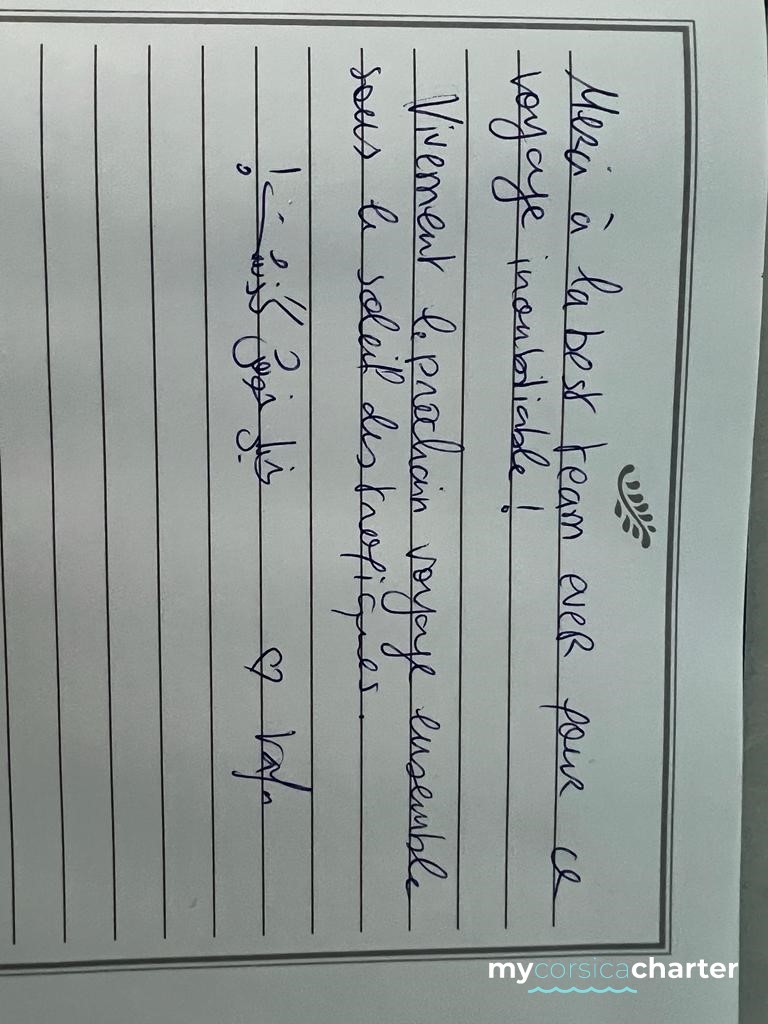 Merci à la best team ever pour ce
voyage inoubliable !
Vivement le prochain voyage ensemble
sous le soleil des tropiques.
♡
mycorsicacharter